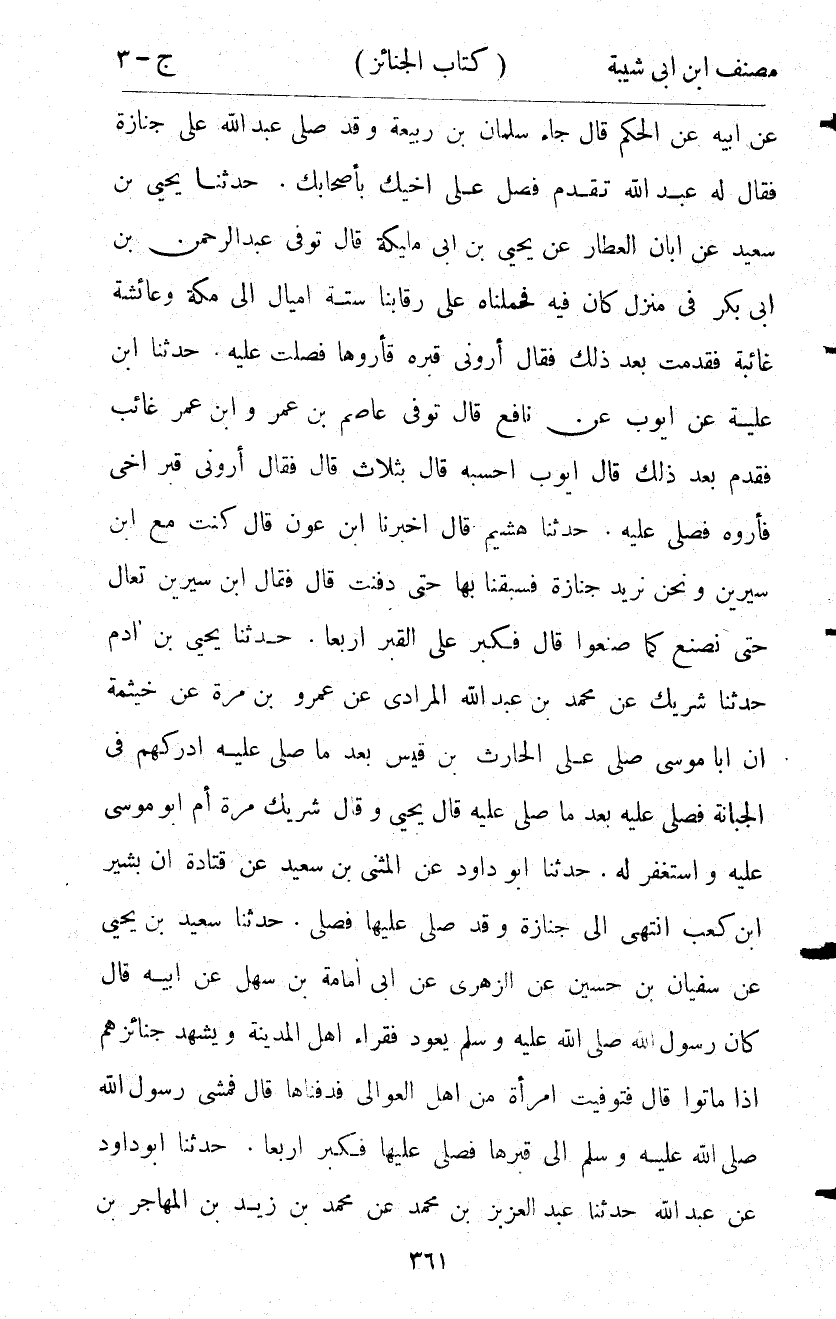 مصنف ابن ابى شيبة ( كتاب الجنائز ) ج - ٣
عن ابيه عن الحكم قال جاء سلمان بن ربيعة و قد صلى عبد الله على جنازة
فقال له عبد الله تقدم فصل على اخيك بأصحابك . حدثنا يحيى بن
سعيد عن ابان العطار عن يحيى بن ابى مايكة قال توفى عبدالرحمن بن
ابى بكر فى منزل كان فيه فحملناه على رقابنا ستة اميال الى مكة وعائشة
غائبة فقدمت بعد ذلك فقال أرونى قبره قأروها فصلت عليه . حدثنا ابن
علية عن ايوب عن نافع قال توفى عاصم بن عمر و ابن عمر غائب
فقدم بعد ذلك قال ايوب احسبه قال بثلاث قال فقال أرونى قبر اخى
فأروه فصلى عليه . حدثنا هشيم قال اخبرنا ابن عون قال كنت مع ابن
سيرين و نحن نريد جنازة فسبقنا بها حتى دفنت قال فقال ابن سيرين تعال
حتى نصنع كما صنعوا قال فكبر على القبر اربعا . حدثنا يحيى بن ادم
حدثنا شريك عن محمد بن عبد الله المرادى عن عمرو بن مرة عن خيثمة
ان ابا موسى صلى على الحارث بن قيس بعد ما صلى عليه ادركهم فى
الجبانة فصلى عليه بعد ما صلى عليه قال يحيى و قال شريك مرة أم ابو موسى
عليه و استغفر له . حدثنا ابو داود عن المثنى بن سعيد عن قتادة ان بشير
ابن كعب انتهى الى جنازة و قد صلى عليها فصلى . حدثنا سعيد بن يحيى
عن سفيان بن حسين عن الزهرى عن ابى أمامة بن سهل عن ابيه قال
كان رسول الله صلى الله عليه و سلم يعود فقراء اهل المدينة و يشهد جنائزهم
اذا ماتوا قال فتوفيت امرأة من اهل العوالى فدفناها قال فمشى رسول الله
صلى الله عليه و سلم الى قبرها فصلى عليها فكبر اربعا . حدثنا ابوداود
عن عبد الله حدثنا عبد العزيز بن محمد عن محمد بن زيد بن المهاجر بن
٣٦١